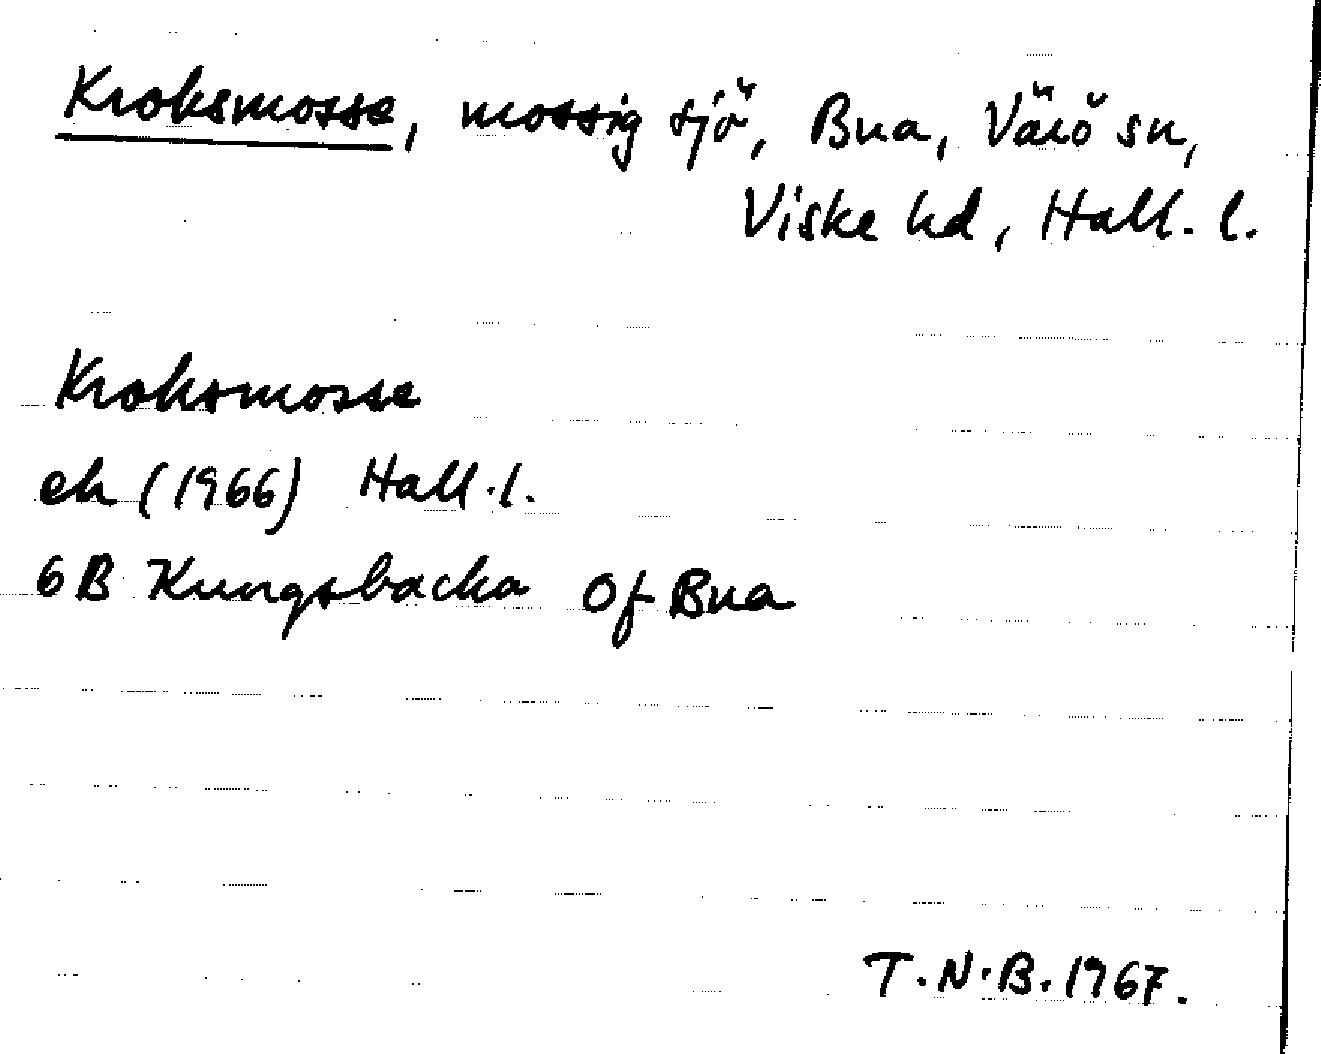 Kroksmosse, mossig sjö, Bua, Värö sn,
Viske hd, Hall. l.
Kroksmosse
ek (1966) Hall. l.
6B Kungsbacka Of Bua
T.N.B. 1967.